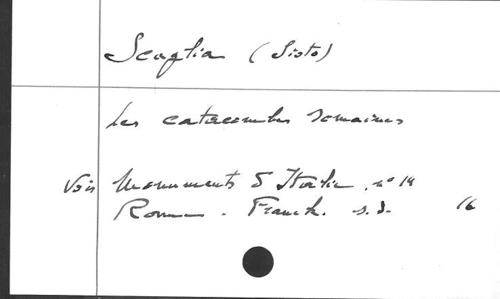 Scaglia (Sisto)
Les catacombes romaines
Voir Monuments d'Italie, n° 14
Rome - Franck. s.d. 16